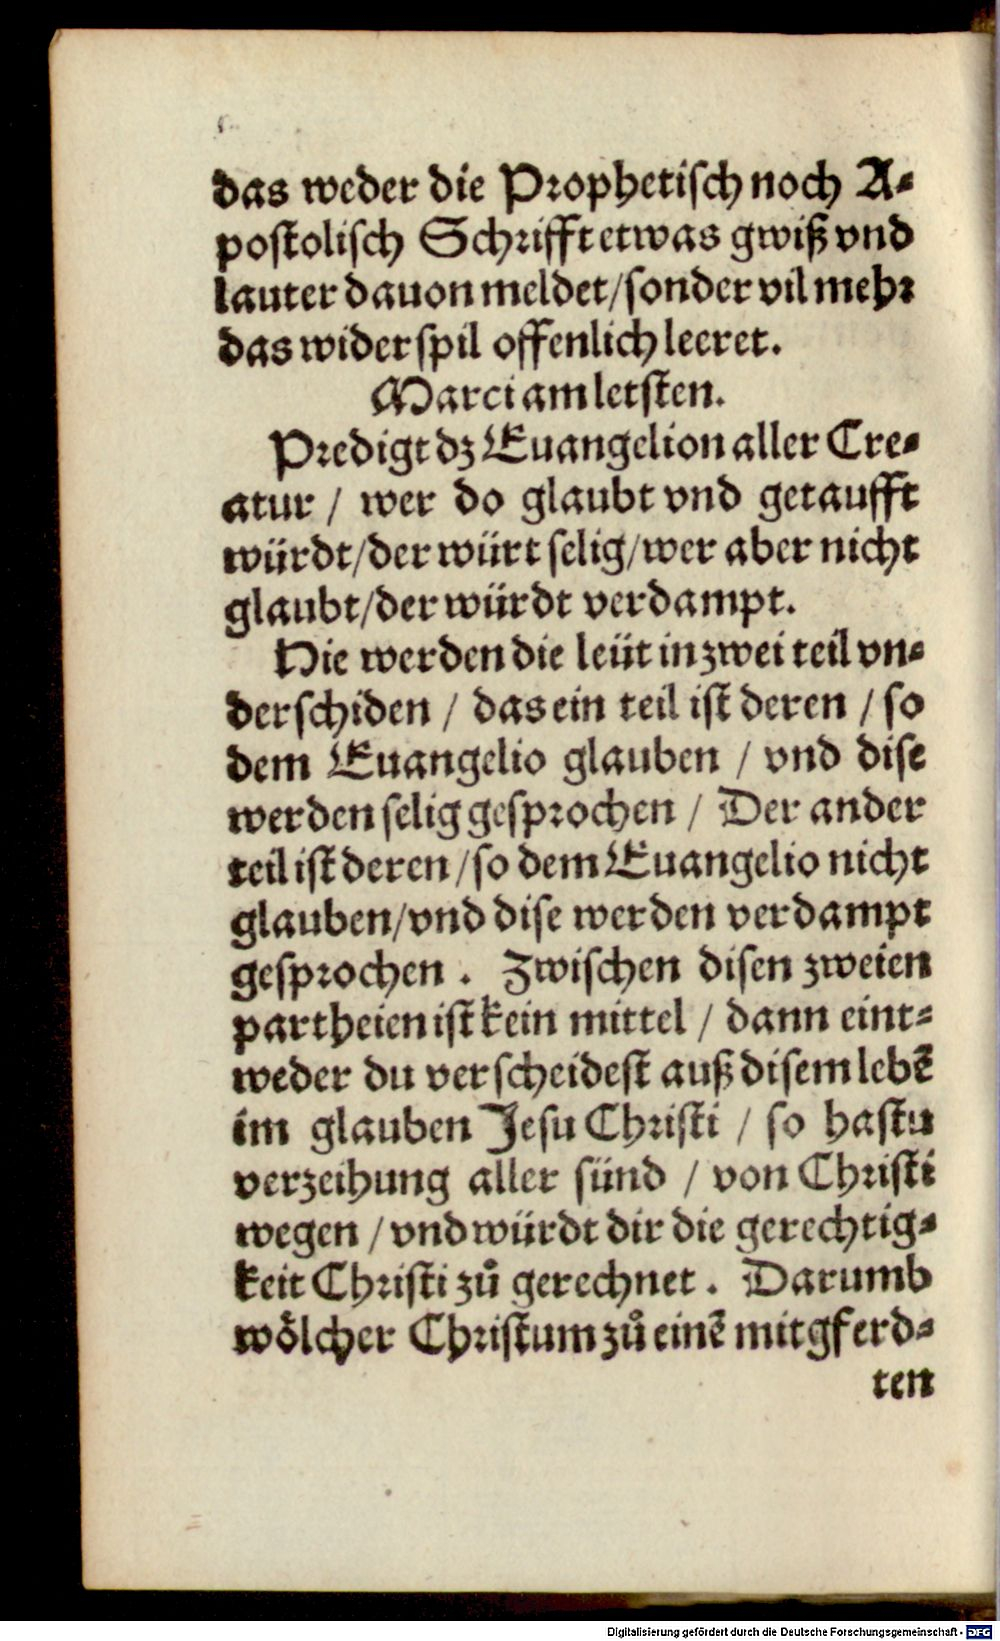 das weder die Prophetisch noch A-
postolisch Schrifft etwas gwiß vnd
lauter dauon meldet/sonder vil mehr
das widerspil offenlich leeret.
Marci am letsten.
Predigt dz Euangelion aller Cre-
atur / wer do glaubt vnd getaufft
würdt/der würt selig/wer aber nicht
glaubt/der würdt verdampt.
Hie werden die leüt in zwei teil vn-
derschiden / das ein teil ist deren / so
dem Euangelio glauben / vnd dise
werden selig gesprochen / Der ander
teil ist deren/so dem Euangelio nicht
glauben/vnd dise werden verdampt
gesprochen. Zwischen disen zweien
partheien ist kein mittel / dann eint-
weder du verscheidest auß disem lebē
im glauben Jesu Christi / so hastu
verzeihung aller sünd / von Christi
wegen / vnd würdt dir die gerechtig-
keit Christi zů gerechnet. Darumb
wölcher Christum zů einē mitgferd-
ten
Digitalisierung gefördert durch die Deutsche Forschungsgemeinschaft - DFG